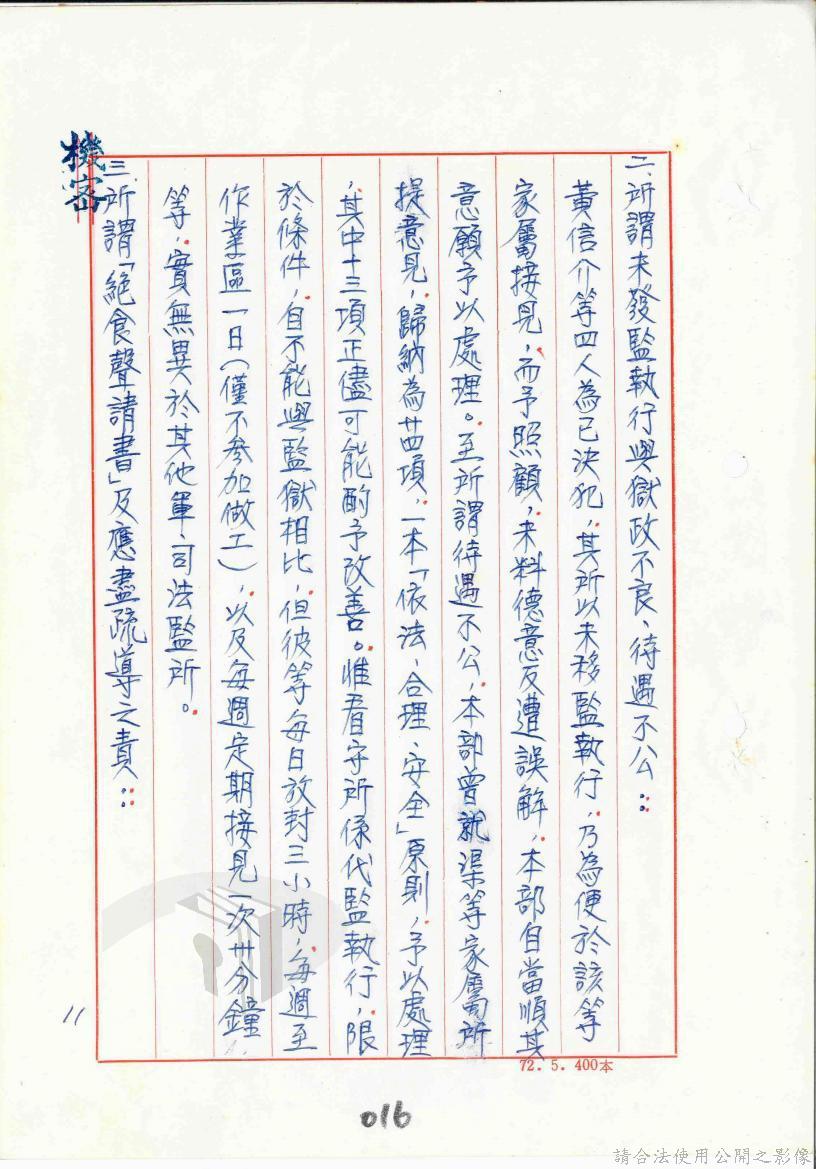 機密
二、所謂未發監執行與獄政不良、待遇不公：
黃信介等四人為已決犯，其所以未移監執行，乃為便於該等
家屬接見，而予照顧，未料德意反遭誤解，本部自當順其
意願予以處理。至所謂待遇不公，本部曾就渠等家屬所
提意見，歸納為廿四項，一本「依法、合理、安全」原則，予以處理
，其中十三項正儘可能酌予改善。惟看守所係代監執行，限
於條件，自不能與監獄相比，但彼等每日放封三小時，每週至
作業區一日（僅不參加做工），以及每週定期接見一次卅分鐘
等，實無異於其他軍、司法監所。
三、所謂「絕食聲請書」及應盡疏導之責：
11
72.5.400本
016
請合法使用公開之影像